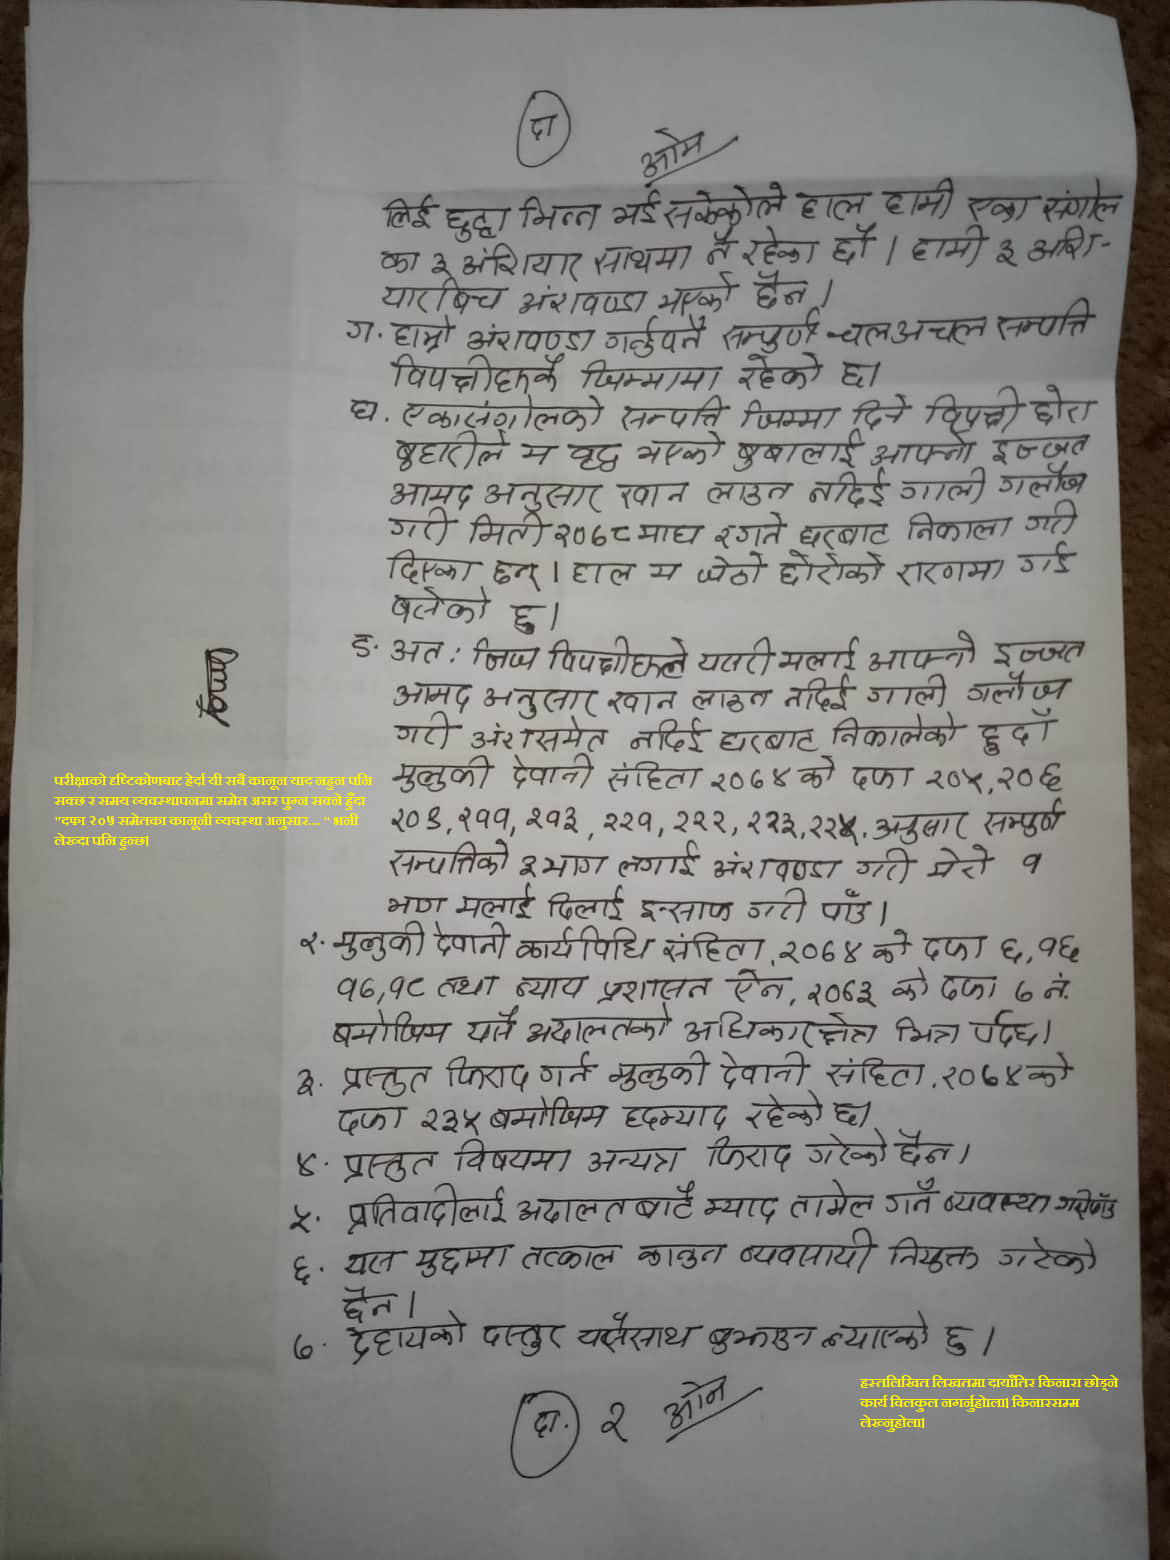 दा
ओम
लिई छुट्टा भिन्न भई सकेकोले हाल हामी एका संगोल
का ३ अंशियार साथमा नै रहेका छौं । हामी ३ अंशि-
यारबिच अंशवण्डा भएको छैन ।
ग. हाम्रो अंशवण्डा गर्नुपर्ने सम्पुर्ण चलअचल सम्पत्ति
विपक्षीहरुकै जिम्मामा रहेको छ।
घ. एकासंगोलको सम्पत्ति जिम्मा दिने विपक्षी छोरा
बुहारीले म वृद्ध भएको बुबालाई आफ्नो इज्जत
आमद अनुसार खान लाउन नदिई गाली गलौज
गरी मिती २०७८ माघ २ गते घरबाट निकाला गरी
दिएका छन् । हाल म जेठो छोराको शरणमा गई
बसेको छु ।
ङ. अतः निज विपक्षीहरुले यसरी मलाई आफ्नो इज्जत
आमद अनुसार खान लाउन नदिई गाली गलौज
गरी अंशसमेत नदिई घरबाट निकालेको हुदाँ
मुलुकी देवानी संहिता २०७४ को दफा २०५, २०६
२०९, २११, २१३, २२१, २२२, २२३, २२४, अनुसार सम्पुर्ण
सम्पत्तिको ३ भाग लगाई अंशवण्डा गरी मेरो १
भाग मलाई दिलाई इन्साफ गरी पाँउ ।
२. मुलुकी देवानी कार्यविधि संहिता, २०७४ को दफा ६, १६
१७, १८ तथा न्याय प्रशासन ऐन, २०७३ को दफा ७ नं.
बमोजिम यसै अदालतको अधिकारक्षेत्र भित्र पर्दछ।
३. प्रस्तुत फिराद गर्न मुलुकी देवानी संहिता, २०७४ को
दफा २३५ बमोजिम हदम्याद रहेको छ।
४. प्रस्तुत विषयमा अन्यत्र फिराद गरेको छैन ।
५. प्रतिवादीलाई अदालतबाटै म्याद तामेल गर्ने व्यवस्था गरीपाँउ
६. यस मुद्दामा तत्काल कानुन व्यवसायी नियुक्त गरेको
छैन ।
७. देहायको दस्तुर यसैसाथ बुझाउन ल्याएको छु ।
दा. २ ओम
परीक्षाको दृष्टिकोणबाट हेर्दा यी सबै कानून याद नहुन पनि
सक्छ र समय व्यवस्थापनमा समेत असर पुग्न सक्ने हुँदा
"दफा २०५ समेतका कानूनी व्यवस्था अनुसार...." भनी
लेख्दा पनि हुन्छ।
हस्तलिखित लिखतमा दायाँतिर किनारा छोड्ने
कार्य विलकुल नगर्नुहोला। किनारसम्म
लेख्नुहोला।